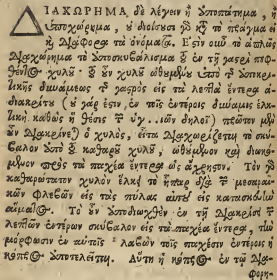 ΔΙΑΧΩΡΗΜΑ δὲ λέγειν ἢ ὑποπάτημα, ἢ
ὑποχώρημα, οὐ διοίσει κτ τὸ πρᾶγμα εἰ
κὴ διάφορα τὰ ὀνόματα. Ἔστιν οὖν τὸ ἁπλῶς
διαχώρημα τὸ ὑποσκυβάλισμα τοῦ ἐν τῇ γαστρὶ πεφ-
θέντος χυλοῦ· τοῦ οὖν χυλοῦ ὠθουμένου ὑπὸ τ ὑποκρι-
τικῆς δυνάμεως τ γαστρὸς εἰς τὰ λεπτὰ ἔντερα ἀ-
διακρίτου (οὐ γάρ ἐστιν ἐν τοῖς ἐντέροις δύναμις ἑλκ-
τικὴ καθὼς ἡ θέσις τ δηλοῖ) πρῶτον μὲν
οὖν διακρίνεται ὁ χυλὸς, εἶτα διαχωρίζεται τὸ σκύ-
βαλον ὑπὸ τοῦ καθαροῦ χυλοῦ, ὠθούμενον καὶ διωκό-
μενον πρὸς τὰ παχέα ἔντερα ὡς ἄχρηστον. Τὸν
καθαρώτατον χυλὸν ἕλκει τὸ ἧπαρ διὰ τ μεσαραϊ-
κῶν φλεβῶν εἰς τὰς πύλας αὐτοῦ εἰς κατασκευὴν
αἵματος. Τὸ οὖν ὑποδιωχθὲν ἐν τῇ διακρίσει τ
λεπτῶν ἐντέρων σκύβαλον εἰς τὰ παχέα ἔντερα, τὴν
μόρφωσιν ἐν αὐτοῖς λαβὸν τοῖς παχέσιν ἐντέροις ἡ
κόπρος ὑποτελεῖται. Αὕτη ἡ κόπρος ἐν τῇ δια-
φορη-